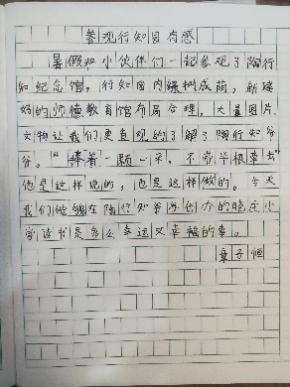 参观行知园有感
暑假和小伙伴们一起参观了陶行
知纪念馆，行知园内绿树成荫，新建
好的师德教育馆布局合理，大量图片
文物让我们更直观的了解了陶行知爷
爷。"捧着一颗心来，不带半根草去"
他是这样说的，也是这样做的。今天
我们能够在陶行知爷爷创办的晓庄小
学读书是多么幸运又幸福的事。
章子恒